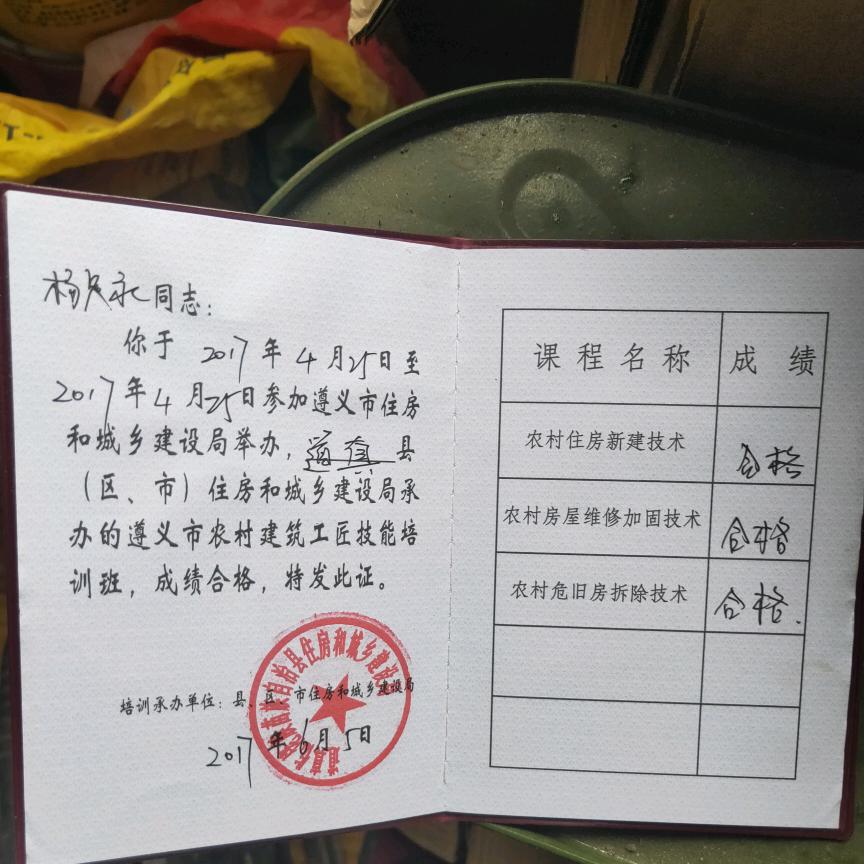 杨其永同志:
你于 2017 年 4 月 25 日至
2017 年 4 月 25 日参加遵义市住房
和城乡建设局举办, 道真 县
(区、市) 住房和城乡建设局承
办的遵义市农村建筑工匠技能培
训班, 成绩合格, 特发此证。
培训承办单位: 县、区、市住房和城乡建设局
2017 年 6 月 5 日
自治县住房和城乡建设
课程名称 成绩
农村住房新建技术 合格
农村房屋维修加固技术 合格
农村危旧房拆除技术 合格.